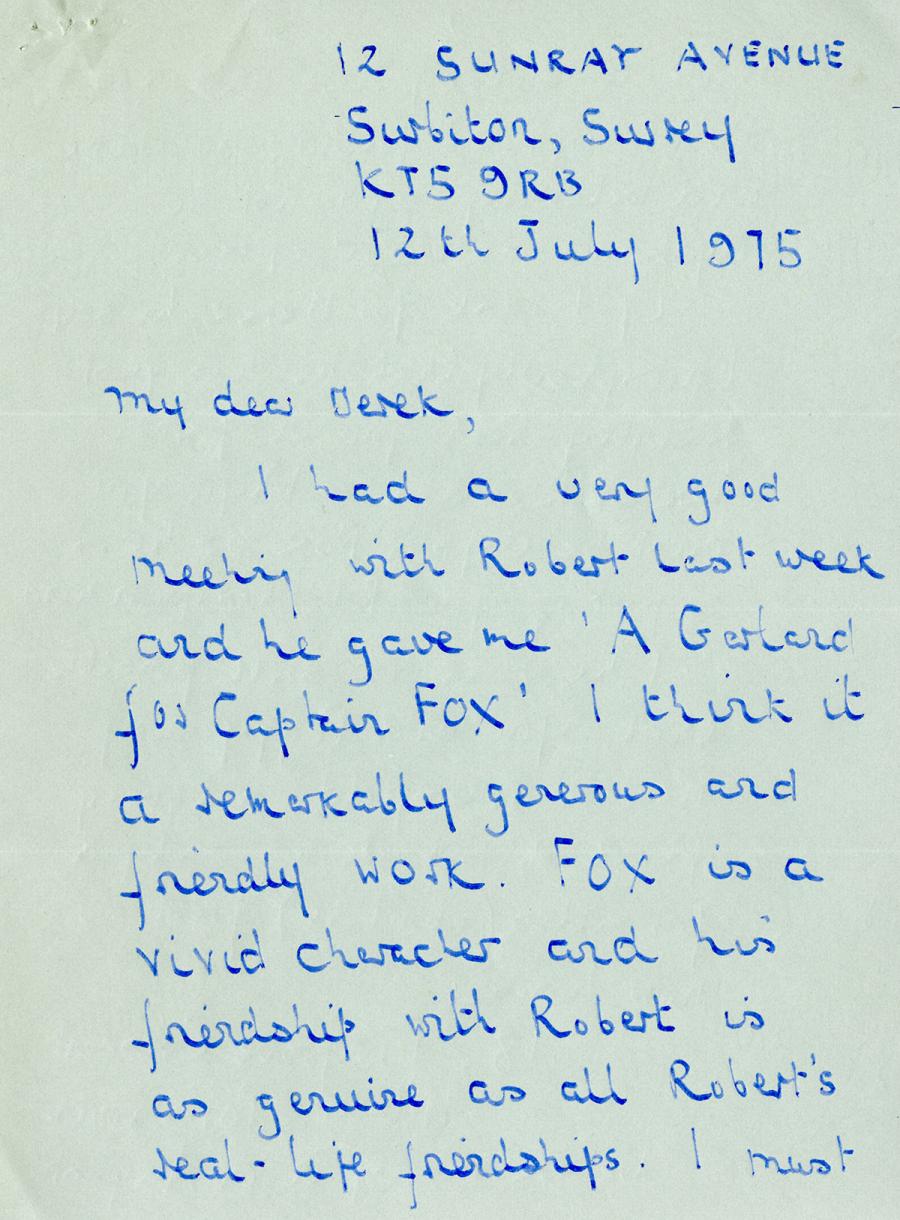 12 SUNRAY AVENUE
Surbiton, Surrey
KT5 9RB
12th July 1975
My dear Derek,
I had a very good
meeting with Robert last week
and he gave me 'A Garland
for Captain Fox' I think it
a remarkably generous and
friendly work. Fox is a
vivid character and his
friendship with Robert is
as genuine as all Robert's
real-life friendships. I must